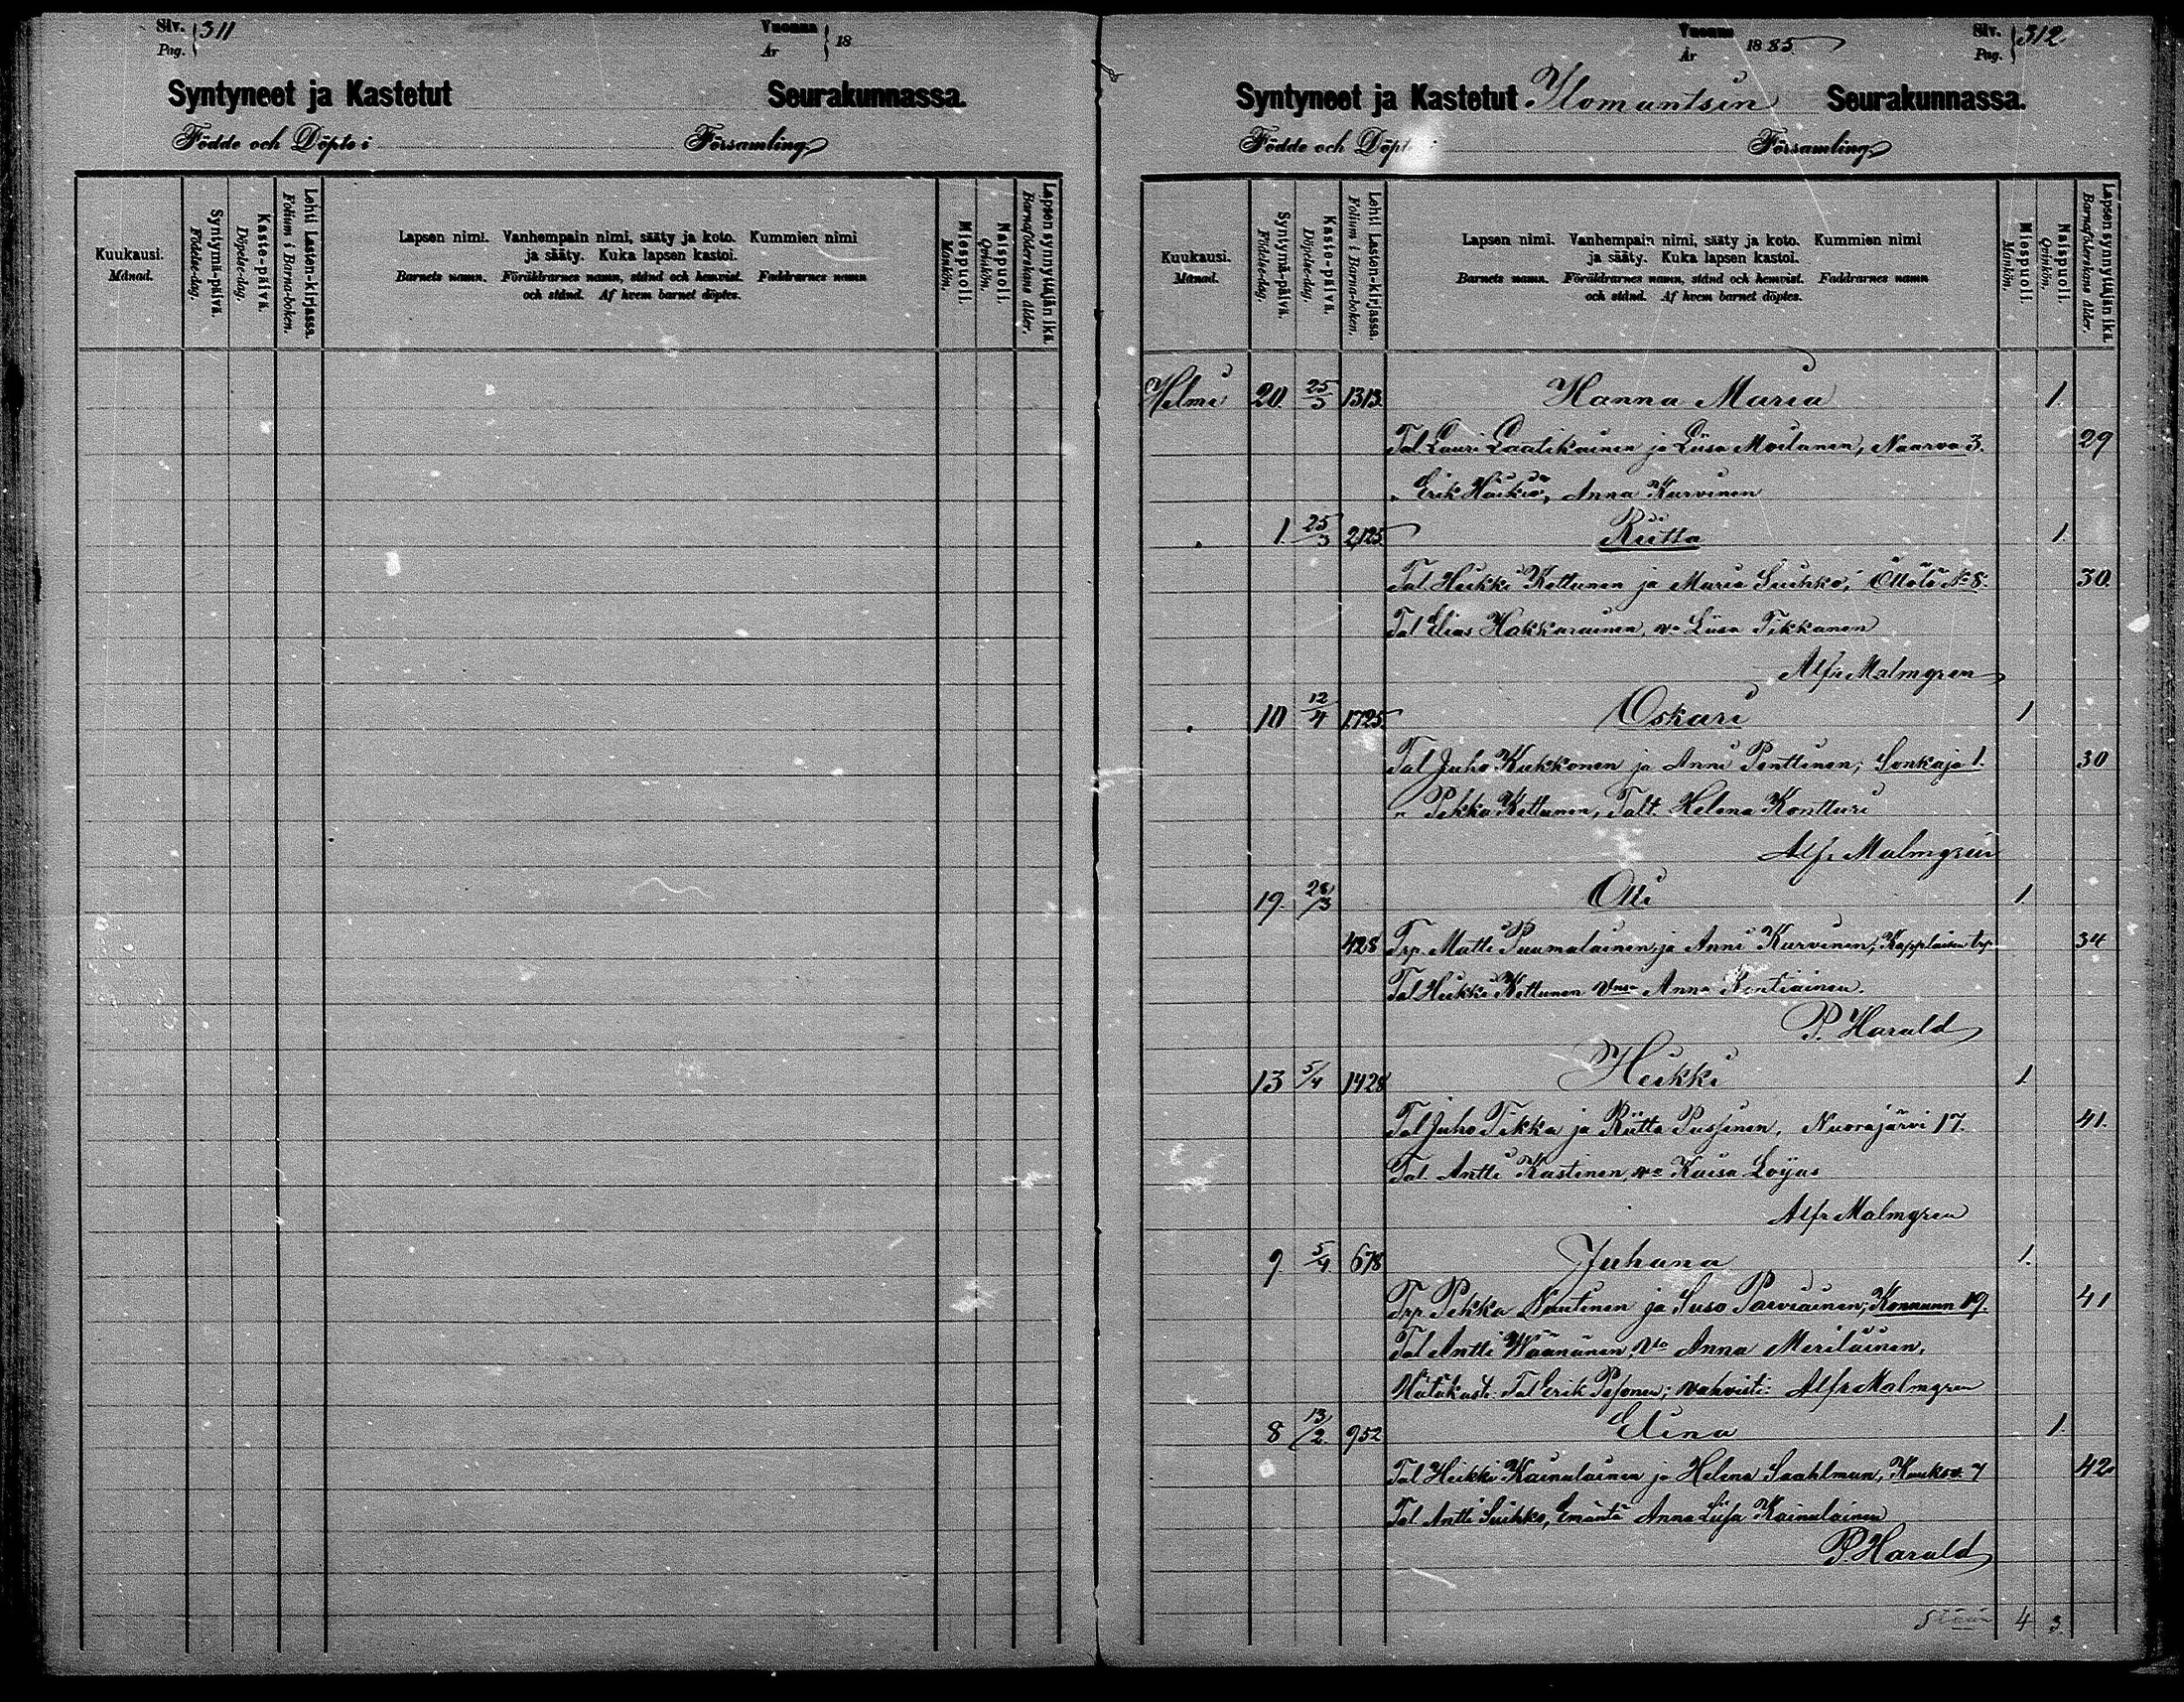 Siv. 311
Pag.
Vuonna 18
År
Syntyneet ja Kastetut Seurakunnassa.
Födde och Döpte i Församling.
Kuukausi.
Månad.
Syntymä-päivä.
Födelse-dag.
Kaste-päivä.
Döpelse-dag.
Lehti Lasten-kirjassa.
Folium i Barna-boken.
Lapsen nimi. Vanhempain nimi, sääty ja koto. Kummien nimi
ja sääty. Kuka lapsen kastoi.
Barnets namn. Föräldrarnes namn, stånd och hemvist. Faddrarnes namn
och stånd. Af hvem barnet döptes.
Miespuoli.
Mankön.
Naispuoli.
Qvinkön.
Lapsen synnyttäjän ikä.
Barnaföderskans ålder.
Vuonna 1885
År
Siv. 312
Pag.
Syntyneet ja Kastetut Ilomantsin Seurakunnassa.
Födde och Döpte i Församling.
Kuukausi.
Månad.
Syntymä-päivä.
Födelse-dag.
Kaste-päivä.
Döpelse-dag.
Lehti Lasten-kirjassa.
Folium i Barna-boken.
Lapsen nimi. Vanhempain nimi, sääty ja koto. Kummien nimi
ja sääty. Kuka lapsen kastoi.
Barnets namn. Föräldrarnes namn, stånd och hemvist. Faddrarnes namn
och stånd. Af hvem barnet döptes.
Miespuoli.
Mankön.
Naispuoli.
Qvinkön.
Lapsen synnyttäjän ikä.
Barnaföderskans ålder.
Helmi 20. 25/3 1313. Hanna Maria 1.
Tal. Lauri Laatikainen ja Liisa Moilanen, Naarva 3. 29
" Erik Häikiö, Anna Kurvinen
" 1. 25/3 2125 Riitta 1.
Tal. Heikki Kettunen ja Maria Suihko, Öllölä № 8. 30.
Tal Elias Hakkarainen, v:o Liisa Tikkanen
Alfr Malmgren
" 10 12/4 1725 Oskari 1
Tal Juho Kukkonen ja Anni Penttinen, Sonkaja 1. 30
" Pekka Kettunen, Talt. Helena Kontturi
Alfr Malmgren
19. 28/3 Olli 1.
428 Trp. Matti Puumalainen ja Anni Kurvinen, 34
Tal Heikki Kettunen Anna Kontiainen.
P. Harald
13 5/4 1428 Heikki 1.
Tal Juho Tikka ja Riitta Pussinen, Nuorajärvi 17. 41.
Tal. Antti Kastinen, v:o Kaisa
Alfr Malmgren
9. 5/4. 678 Juhana 1.
Trp. Pekka Nuutinen ja Suso Parviainen, Konnunn 19. 41
Tal Antti Wäänänen, v:o Anna Meriläinen,
Hätäkast: Tal Erik; vahvisti: Alfr Malmgren
8 13/2. 952 Elina 1.
Tal Heikki Kainulainen ja Helena Saahlman, 7 42
Tal Antti Suihko, Emäntä Anna Liisa Kainulainen
P Harald
4 3.